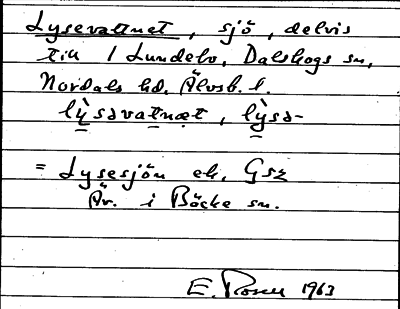 Lysevattnet, sjö, delvis
till 1 Lundebo, Dalskogs sn,
Nordals hd. Älvsb. l.
lỳsəvatnət, lỳsə-
= Lysesjön ek. Gsz
Är. i Bäcke sn.
E. Rosen 1963